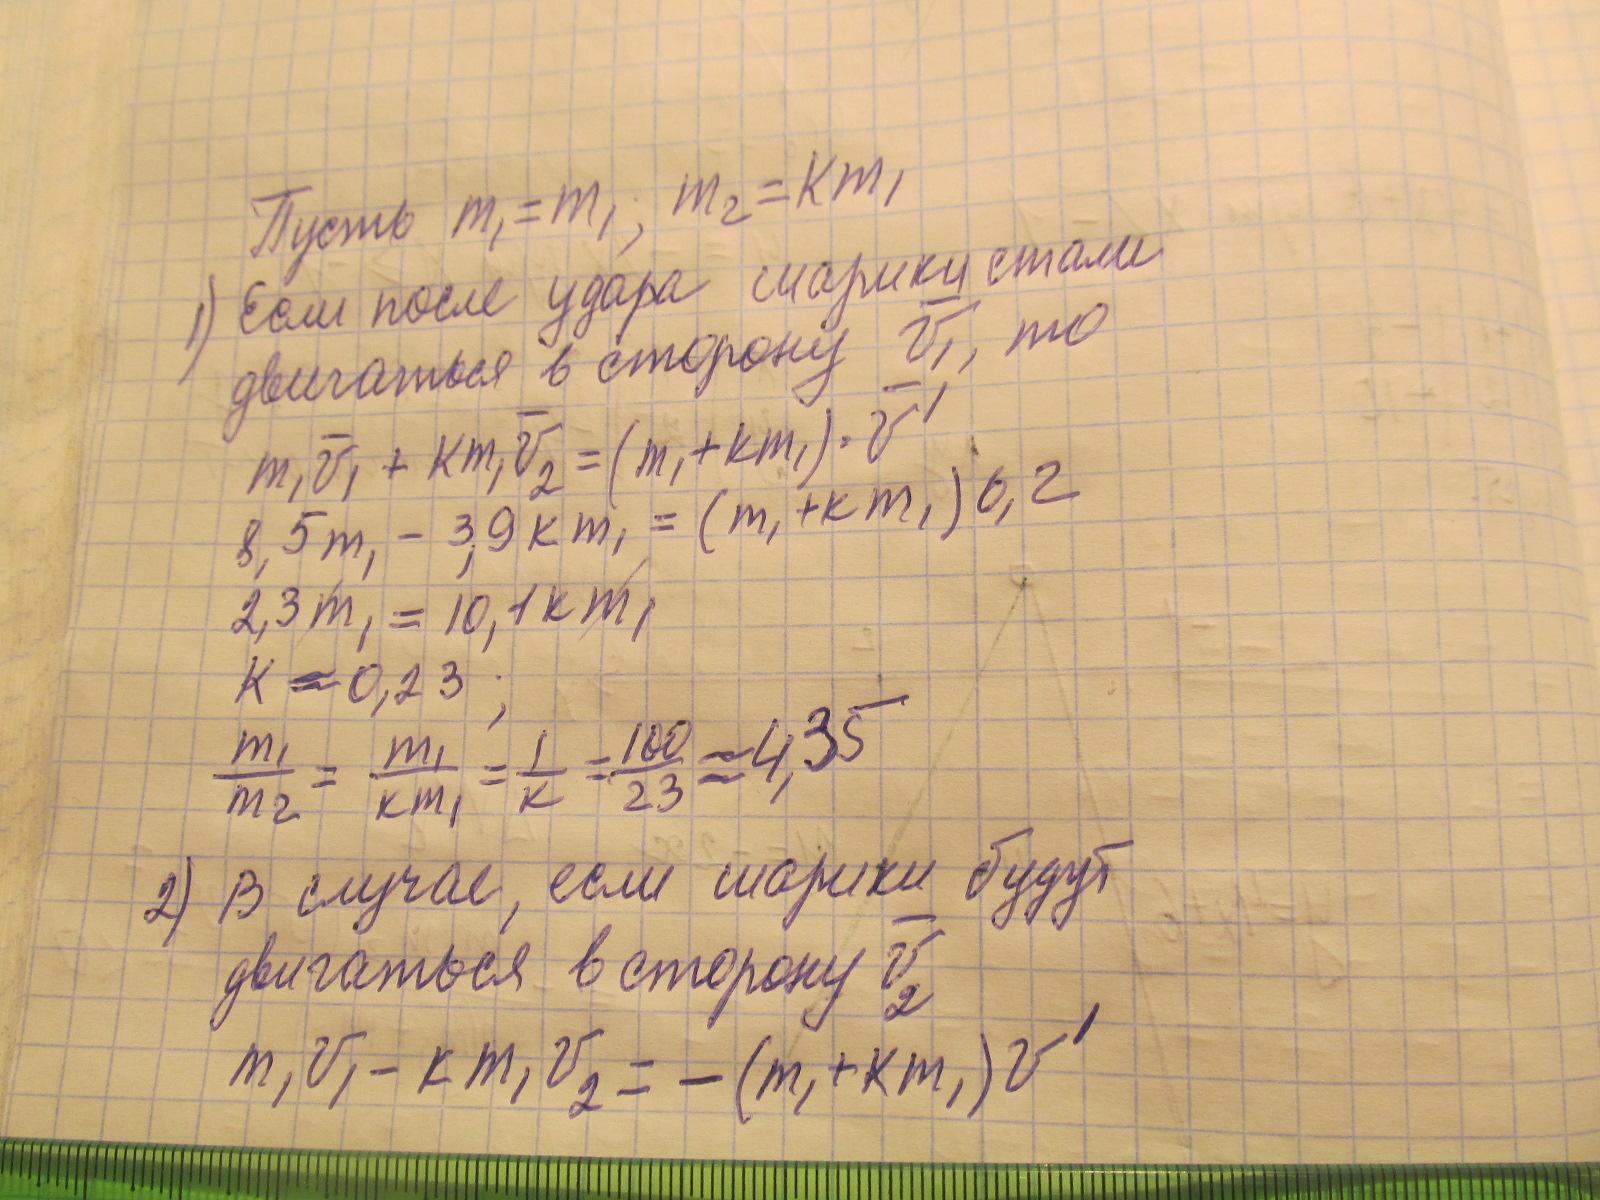 Пусть m₁ = m₁; m₂ = Km₁
1) Если после удара шарики стали
двигаться в сторону v̅₁, то
m₁v̅₁ + Km₁v̅₂ = (m₁+km₁)·v̅'
8,5m₁ - 3,9km₁ = (m₁+km₁)6,2
2,3m₁ = 10,1km₁
K ≈ 0,23;
m₁/m₂ = m₁/km₁ = 1/k = 100/23 ≈ 4,35
2) В случае, если шарики будут
двигаться в сторону v̅₂
m₁v̅₁ - km₁v̅₂ = -(m₁+km₁)v̅'